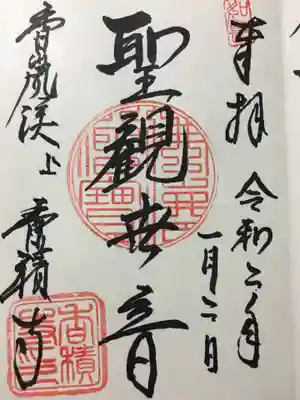 奉拝
令和二年
一月二日
聖観世音
香嵐渓上
香積寺
香積